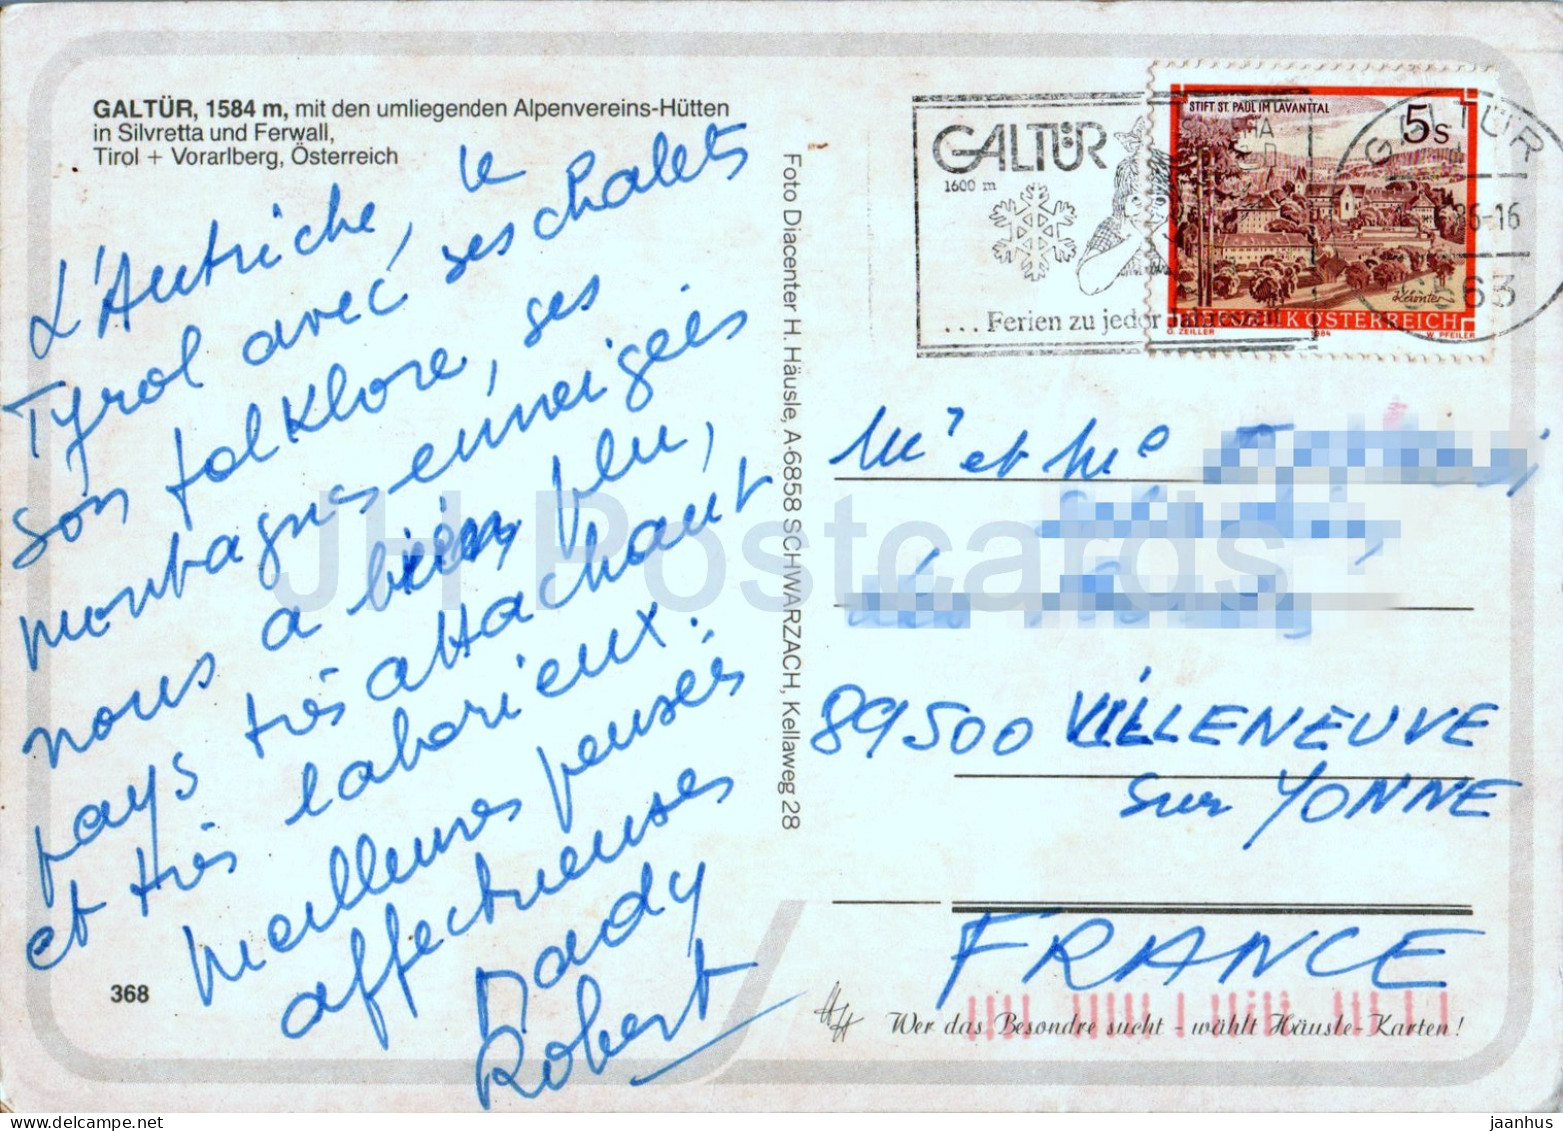 GALTÜR, 1584 m, mit den umliegenden Alpenvereins-Hütten
in Silvretta und Ferwall,
Tirol + Vorarlberg, Österreich
L'Autriche, le
Tyrol avec ses chalets
son folklore, ses
montagnes enneigées
nous a bien plu,
pays très attachant
et très laborieux.
Meilleures pensées
affectueuses
Dady
Robert
368
Foto Diacenter H. Häusle, A-6858 SCHWARZACH, Kellaweg 28
GALTÜR
1600 m
... Ferien zu jeder Jahreszeit
STIFT ST. PAUL IM LAVANTTAL
5 S
REPUBLIK ÖSTERREICH
G. ZEILLER 1984 W. PFEILER
GALTÜR
86-16
6563
Mr et Me
89500 VILLENEUVE
sur YONNE
FRANCE
HH Wer das Besondre sucht - wählt Häusle-Karten!
JH Postcards
delcampe.net
jaanhus